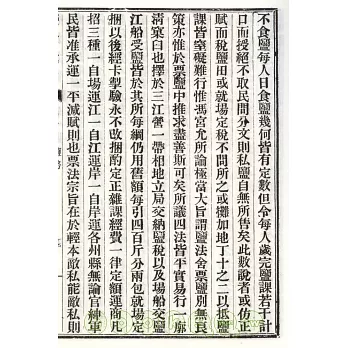 不食鹽每人日食鹽幾何皆有定數但令每人歲完鹽課若干計
口而授絕不取民間分文則私鹽自無所售矣此數說者或仿正
賦而稅鹽田或就場定稅不問所之或攤加地丁十之二以抵鹽
課皆窒礙難行惟馮宮允所論極當大旨謂鹽法舍票鹽別無良
策亦惟於票鹽中推求盡善斯可矣所議四法皆平實易行一廓
清窠臼也擇於三江營一帶相地立局交納鹽稅以及場船交鹽
江船受鹽皆於其所每綱仍用舊額每引四百斤分兩包就場定
捆以後經卡掣驗永不改捆酌定正雜課經費一律定額運商凡
招三種一自場運江一自江運岸一自岸運各州縣無論官紳軍
民皆准承運一平減賦則也票法宗旨在於輕本敵私能敵私則